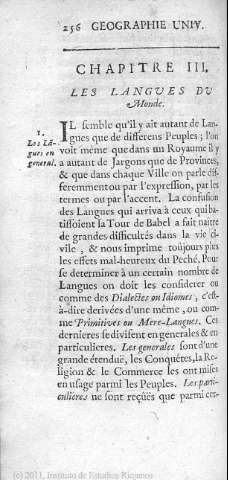 256 GEOGRAPHIE UNIV.
CHAPITRE III.
LES LANGUES DU
Monde.
1.
Les Lã-
gues en
general.
IL semble qu'il y aît autant de Lan-
gues que de differens Peuples; l'on
voit même que dans un Royaume il y
a autant de Jargons que de Provinces,
& que dans chaque Ville on parle dif-
feremment ou par l'expression, par les
termes ou par l'accent. La confusion
des Langues qui arriva à ceux qui ba-
tissoient la Tour de Babel a fait naitre
de grandes difficultés dans la vie ci-
vile, & nous imprime toûjours plus
les effets mal-heureux du Peché. Pour
se determiner à un certain nombre de
Langues on doit les considerer ou
comme des Dialectes ou Idiomes, c'est-
à-dire derivées d'une même, ou com-
me Primitives ou Mere-Langues. Ces
dernieres se divisent en generales & en
particulieres. Les generales sont d'une
grande étenduë, les Conquêtes, la Re-
ligion & le Commerce les ont mises
en usage parmi les Peuples. Les parti-
culieres ne sont reçûës que parmi cer-
(c) 2011, Instituto de Estudios Riojanos